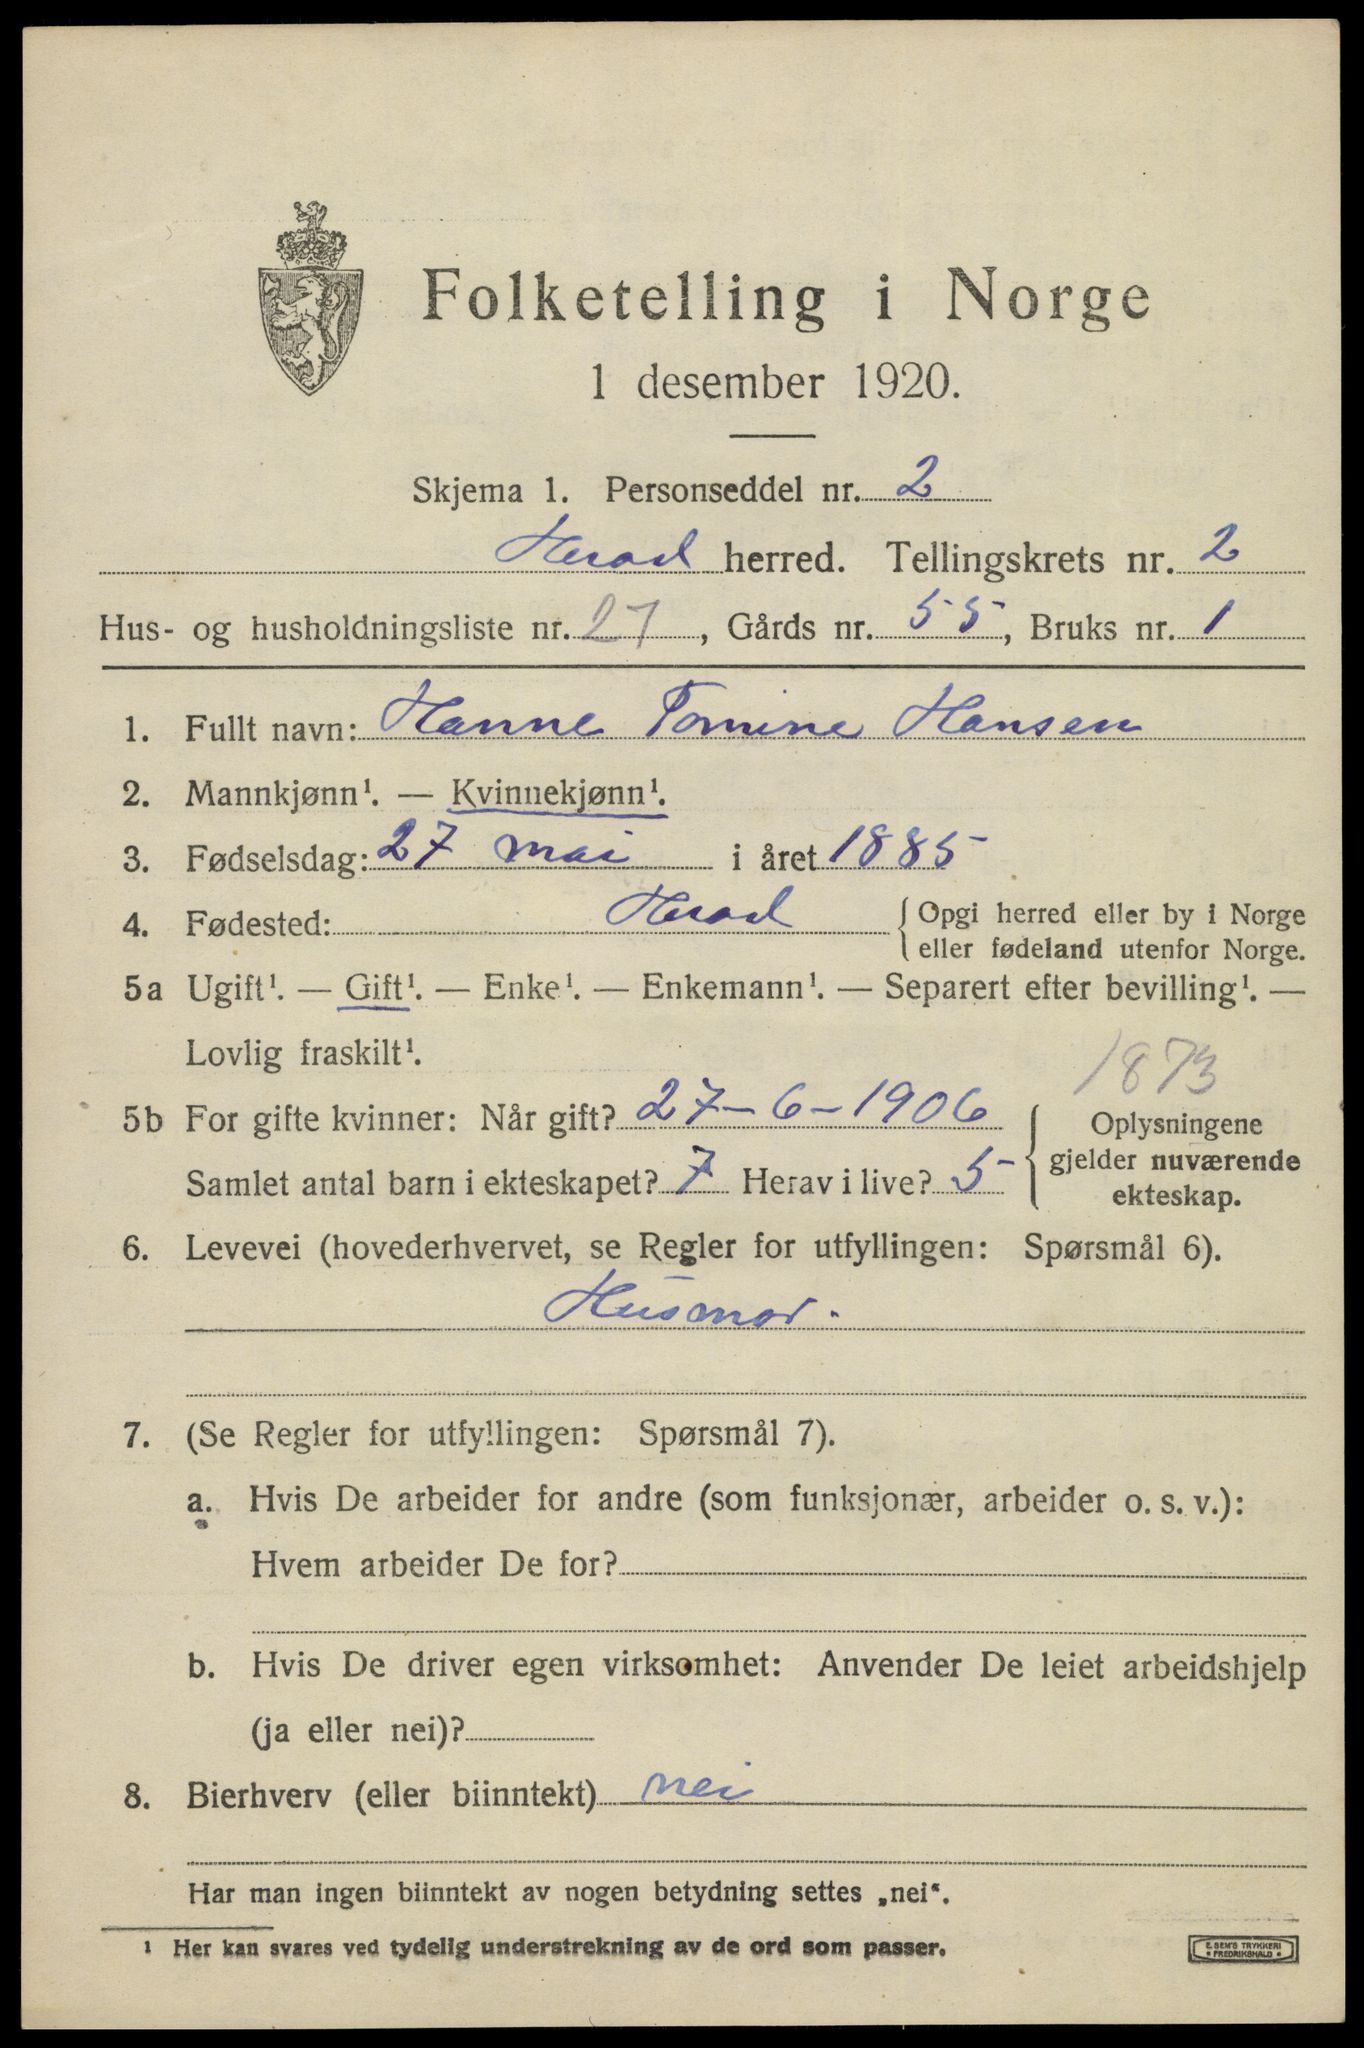 Folketelling i Norge
1 desember 1920.
Skjema 1. Personseddel nr. 2
Herad herred. Tellingskrets nr. 2
Hus- og husholdningsliste nr. 27, Gårds nr. 55, Bruks nr. 1
1. Fullt navn: Hanne Tomine Hansen
2. Mannkjønn¹. — Kvinnekjønn¹.
3. Fødselsdag: 27 mai i året 1885
4. Fødested: Herad { Opgi herred eller by i Norge
eller fødeland utenfor Norge.
5a Ugift¹. — Gift¹. — Enke¹. — Enkemann¹. — Separert efter bevilling¹. —
Lovlig fraskilt¹.
1873
5b For gifte kvinner: Når gift? 27-6-1906
Samlet antal barn i ekteskapet? 7 Herav i live? 5
Oplysningene
gjelder nuværende
ekteskap.
6. Levevei (hovederhvervet, se Regler for utfyllingen: Spørsmål 6).
Husmor.
7. (Se Regler for utfyllingen: Spørsmål 7).
a. Hvis De arbeider for andre (som funksjonær, arbeider o. s. v.):
Hvem arbeider De for?
b. Hvis De driver egen virksomhet: Anvender De leiet arbeidshjelp
(ja eller nei)?
8. Bierhverv (eller biinntekt) nei
Har man ingen biinntekt av nogen betydning settes „nei“.
¹ Her kan svares ved tydelig understrekning av de ord som passer.
E. SEM'S TRYKKERI
FREDRIKSHALD